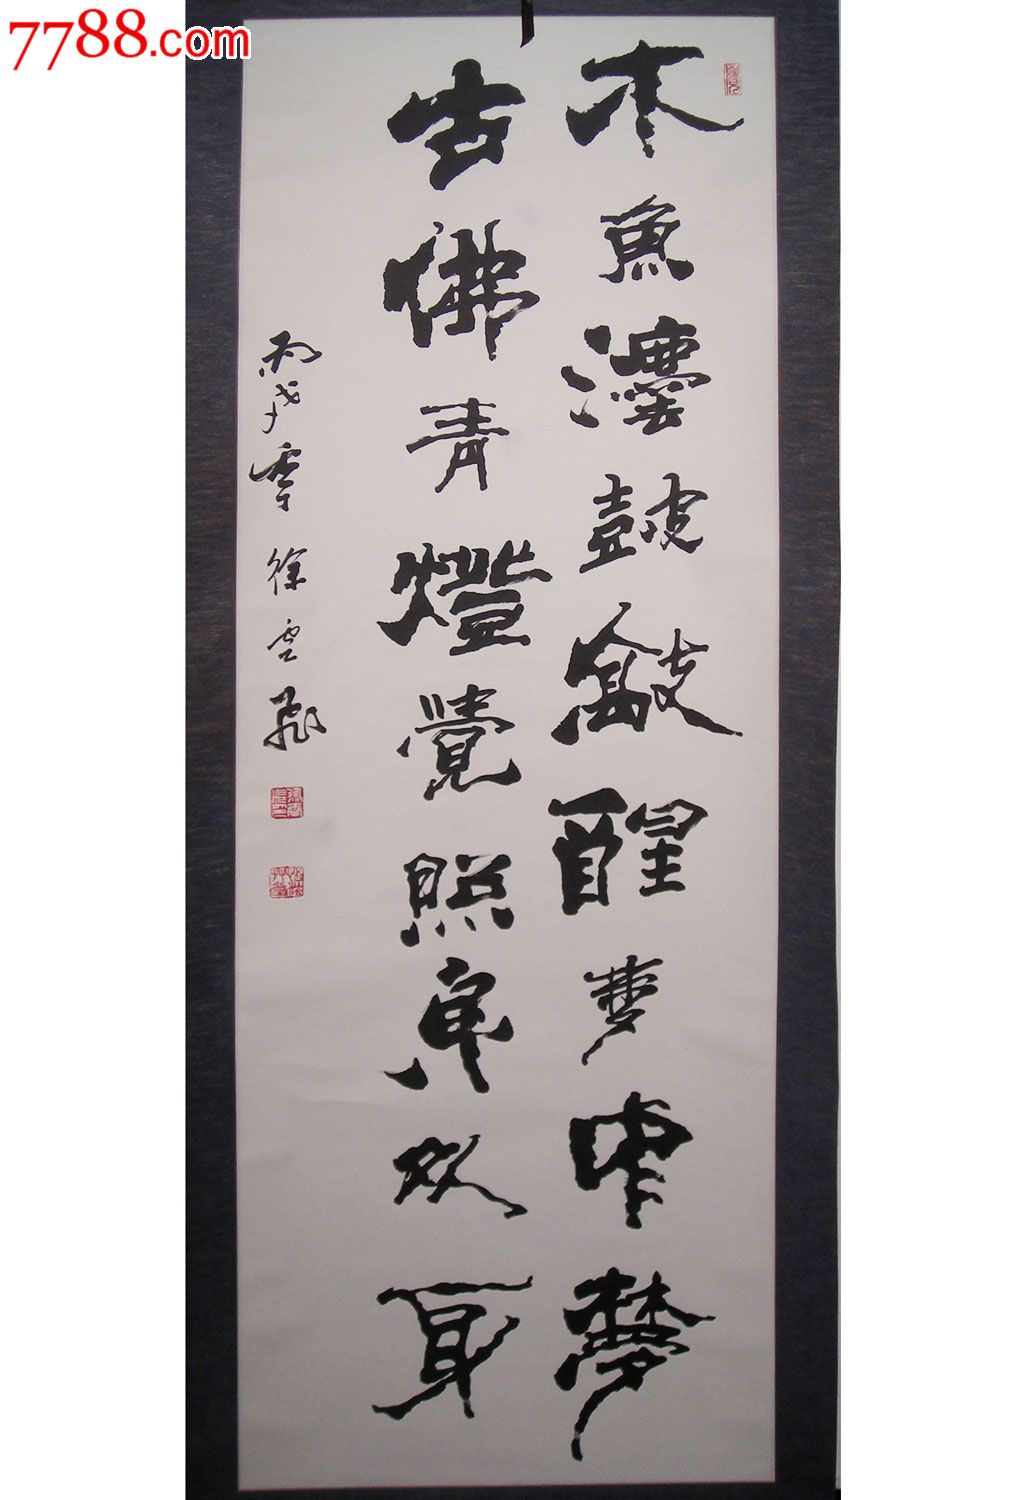 7788.com
木魚灋鼓敲醒夢中夢
古佛青燈覺照身外身
丙戌徐雲飛